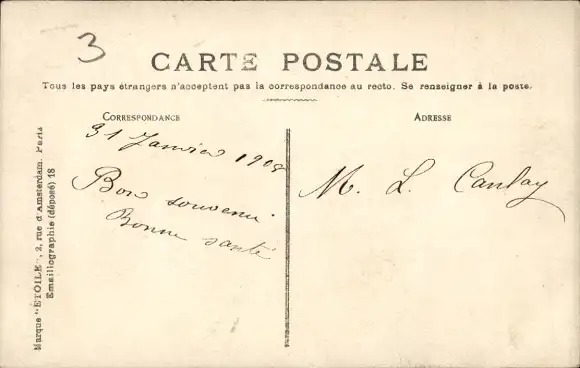 3
CARTE POSTALE
Tous les pays étrangers n'acceptent pas la correspondance au recto. Se renseigner à la poste.
CORRESPONDANCE
ADRESSE
31 Janvier 1908
Bon souvenir
Bonne santé
M. L. Canlay
Marque "ETOILE", 2, rue d'Amsterdam. Paris
Emaillographie (déposé) 18